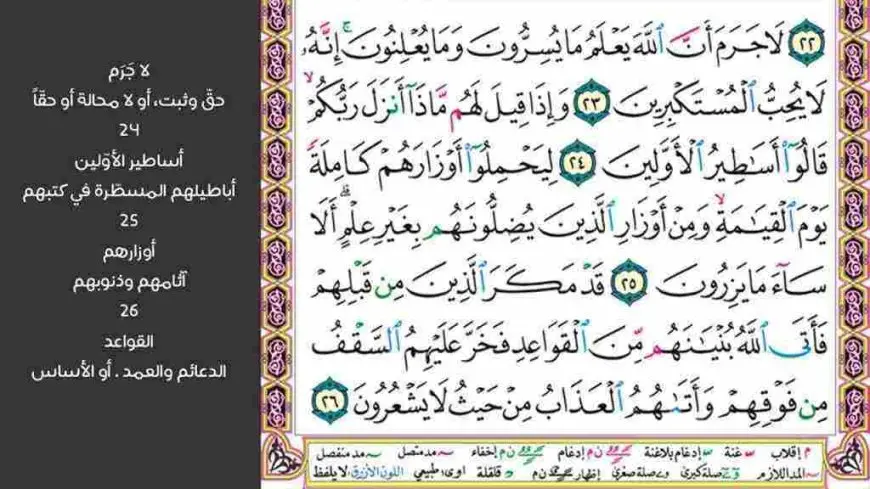 ٢٢ لَا جَرَمَ أَنَّ ٱللَّهَ يَعْلَمُ مَا يُسِرُّونَ وَمَا يُعْلِنُونَ ۚ إِنَّهُۥ
لَا يُحِبُّ ٱلْمُسْتَكْبِرِينَ ٢٣ وَإِذَا قِيلَ لَهُم مَّاذَآ أَنزَلَ رَبُّكُمْ ۙ
قَالُوٓا۟ أَسَـٰطِيرُ ٱلْأَوَّلِينَ ٢٤ لِيَحْمِلُوٓا۟ أَوْزَارَهُمْ كَامِلَةً
يَوْمَ ٱلْقِيَـٰمَةِ ۙ وَمِنْ أَوْزَارِ ٱلَّذِينَ يُضِلُّونَهُم بِغَيْرِ عِلْمٍ ۗ أَلَا
سَآءَ مَا يَزِرُونَ ٢٥ قَدْ مَكَرَ ٱلَّذِينَ مِن قَبْلِهِمْ
فَأَتَى ٱللَّهُ بُنْيَـٰنَهُم مِّنَ ٱلْقَوَاعِدِ فَخَرَّ عَلَيْهِمُ ٱلسَّقْفُ
مِن فَوْقِهِمْ وَأَتَىٰهُمُ ٱلْعَذَابُ مِنْ حَيْثُ لَا يَشْعُرُونَ ٢٦
م إقلاب غنة إدغام بلاغنة ن م إدغام ن م إخفاء مد متصل مد منفصل
المد اللازم صلة كبرى صلة صغرى إظهار ن م قلقلة طبيعي اللون الأزرق: لا يلفظ
لا جَرَم
حقّ وثبت، أو لا محالة أو حقّاً
24
أساطير الأوّلين
أباطيلهم المسطّرة في كتبهم
25
أوزارهم
آثامهم وذنوبهم
26
القواعد
الدعائم والعمد . أو الأساس